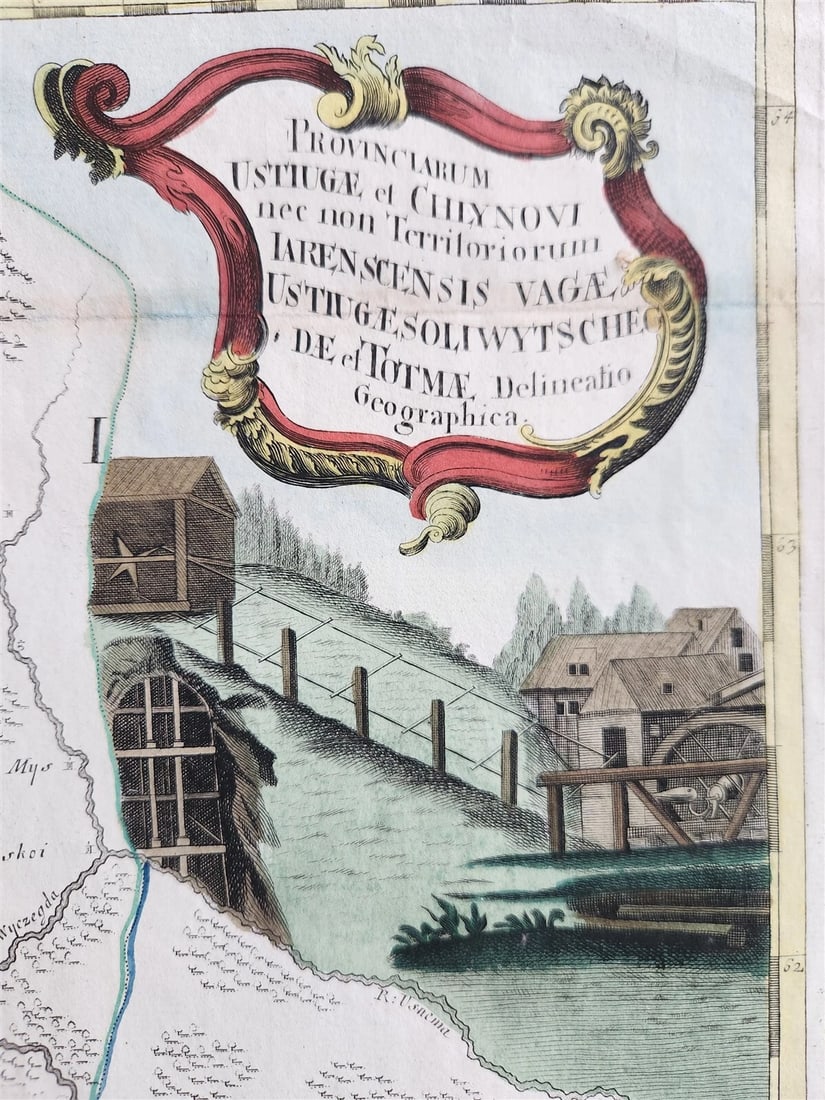 PROVINCIARUM
USTIUGÆ et CHLYNOVI
nec non Territoriorum
IARENSCENSIS VAGÆ
USTIUGÆ SOLIWYTSCHEG
DÆ et TOTMÆ Delineatio
Geographica.
64
I
63
Mys
skoi
Wyczegda
62
R. Usnemi